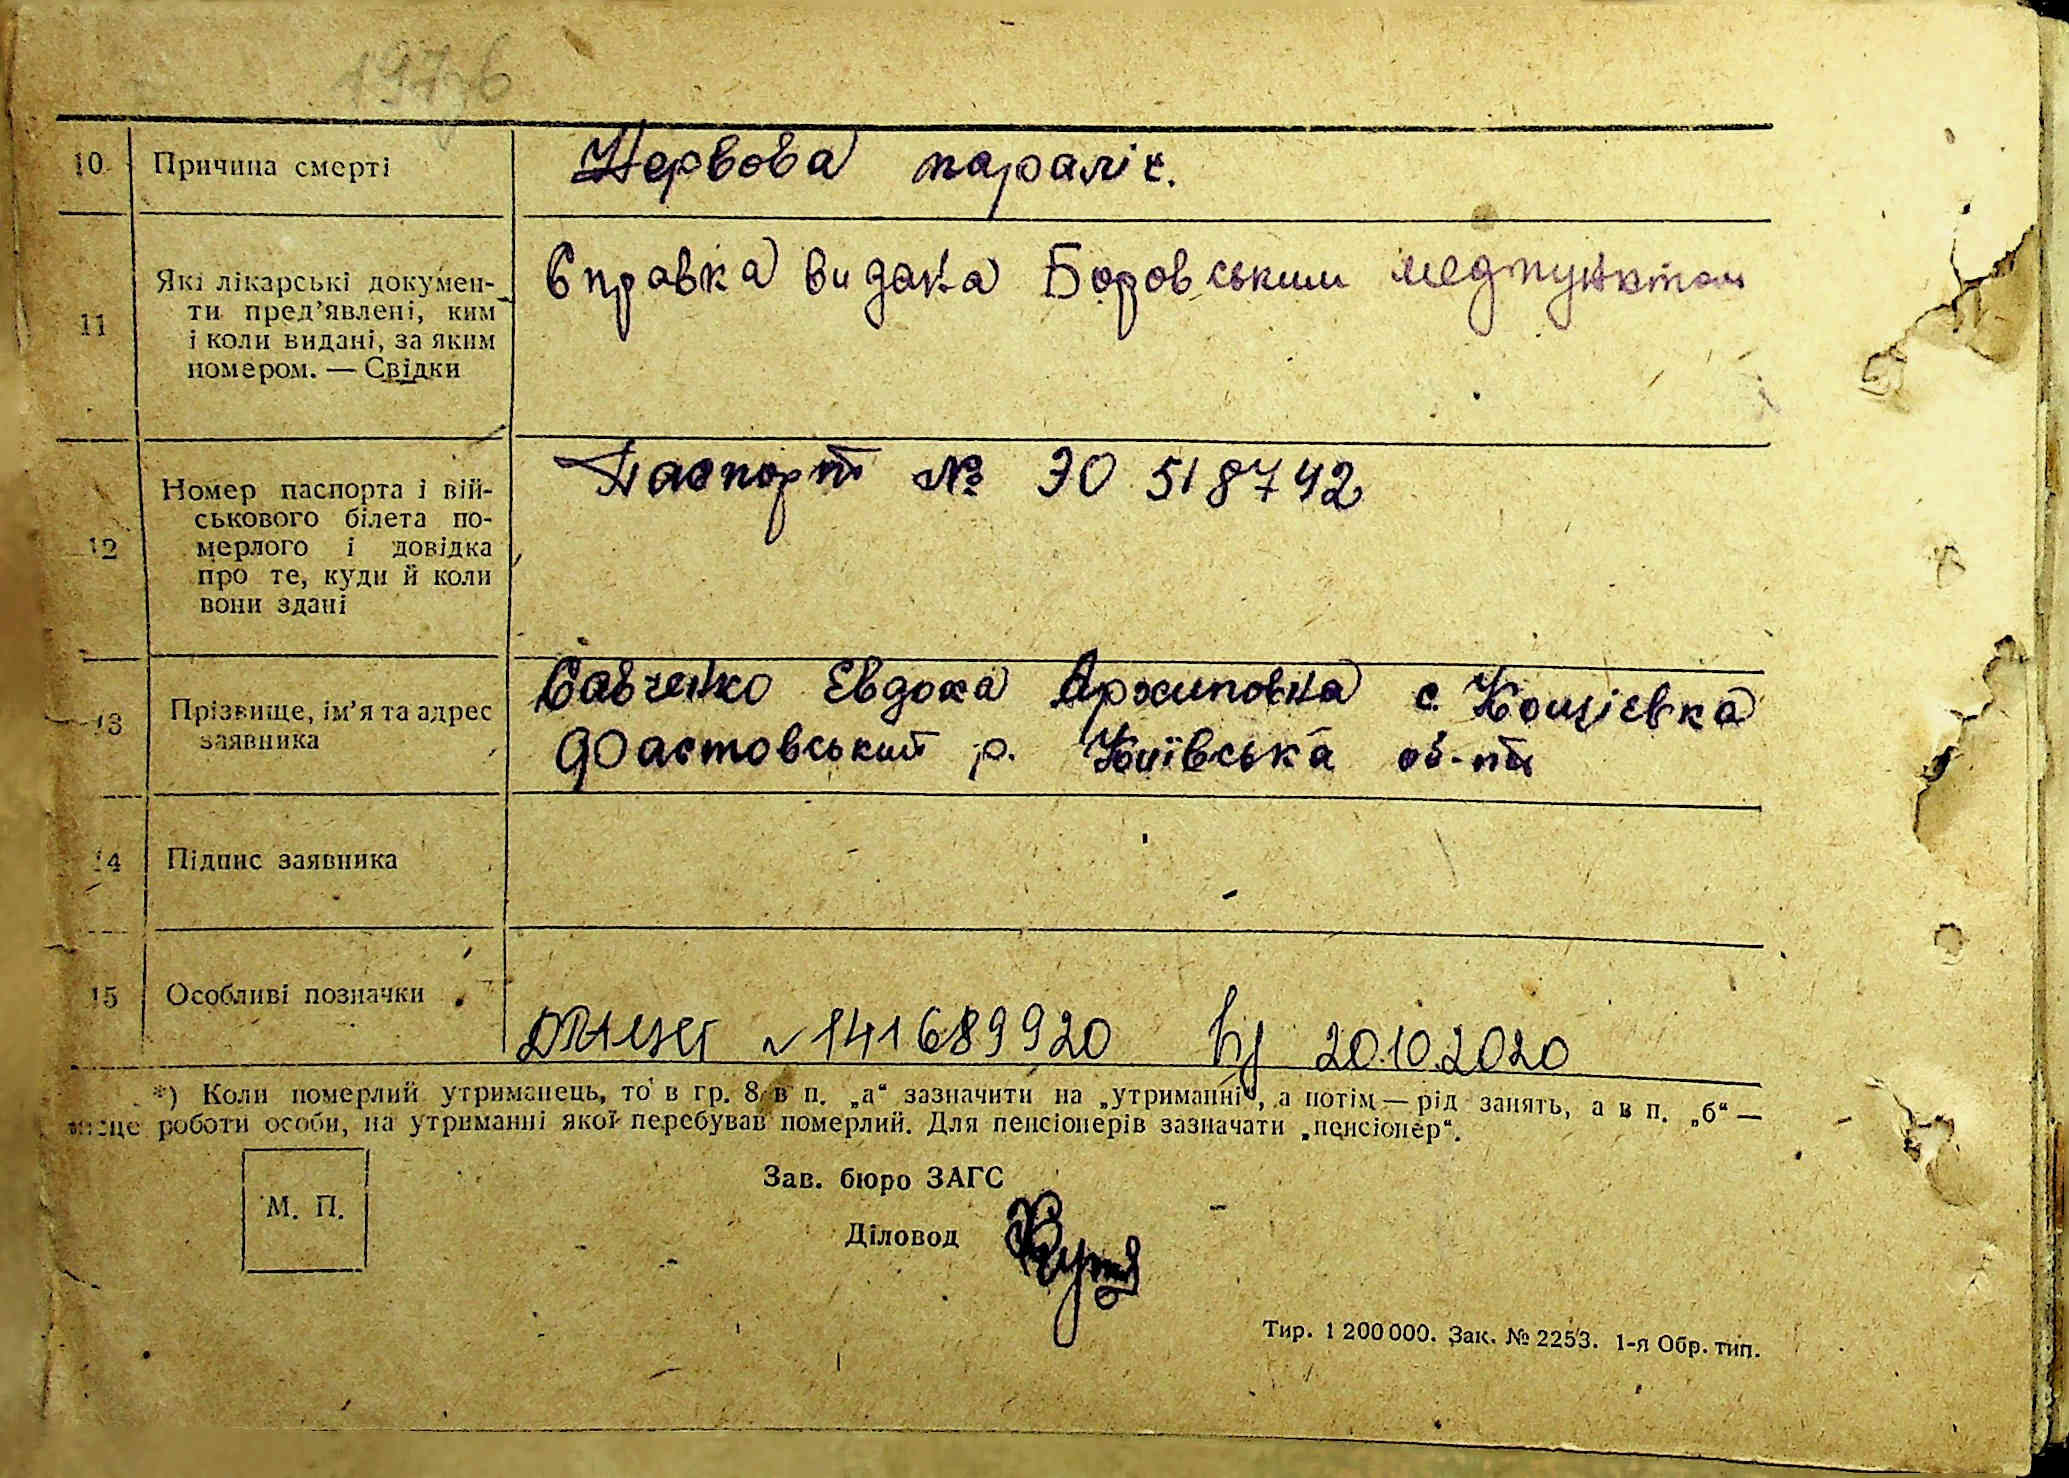 10 Причина смерті Нервова параліч.
11 Які лікарські докумен-
ти пред’явлені, ким
і коли видані, за яким
номером. — Свідки
Справка видана Боровським медпунктом
12 Номер паспорта і вій-
ськового білета по-
мерлого і довідка
про те, куди й коли
вони здані
Паспорт № ЭО 518742
13 Прізвище, ім’я та адрес
заявника
Савченко Евдоха Архиповна с. Кощіевка
Фастовський р. Київська об-ть
14 Підпис заявника
15 Особливі позначки
№ 141689920 20.10.2020
*) Коли померлий утриманець, то в гр. 8 в п. „а“ зазначити на „утриманні“, а потім — рід занять, а в п. „б“ —
місце роботи особи, на утриманні якої перебував померлий. Для пенсіонерів зазначати „пенсіонер“.
М. П.
Зав. бюро ЗАГС
Діловод
Тир. 1 200 000. Зак. № 2253. 1-я Обр. тип.